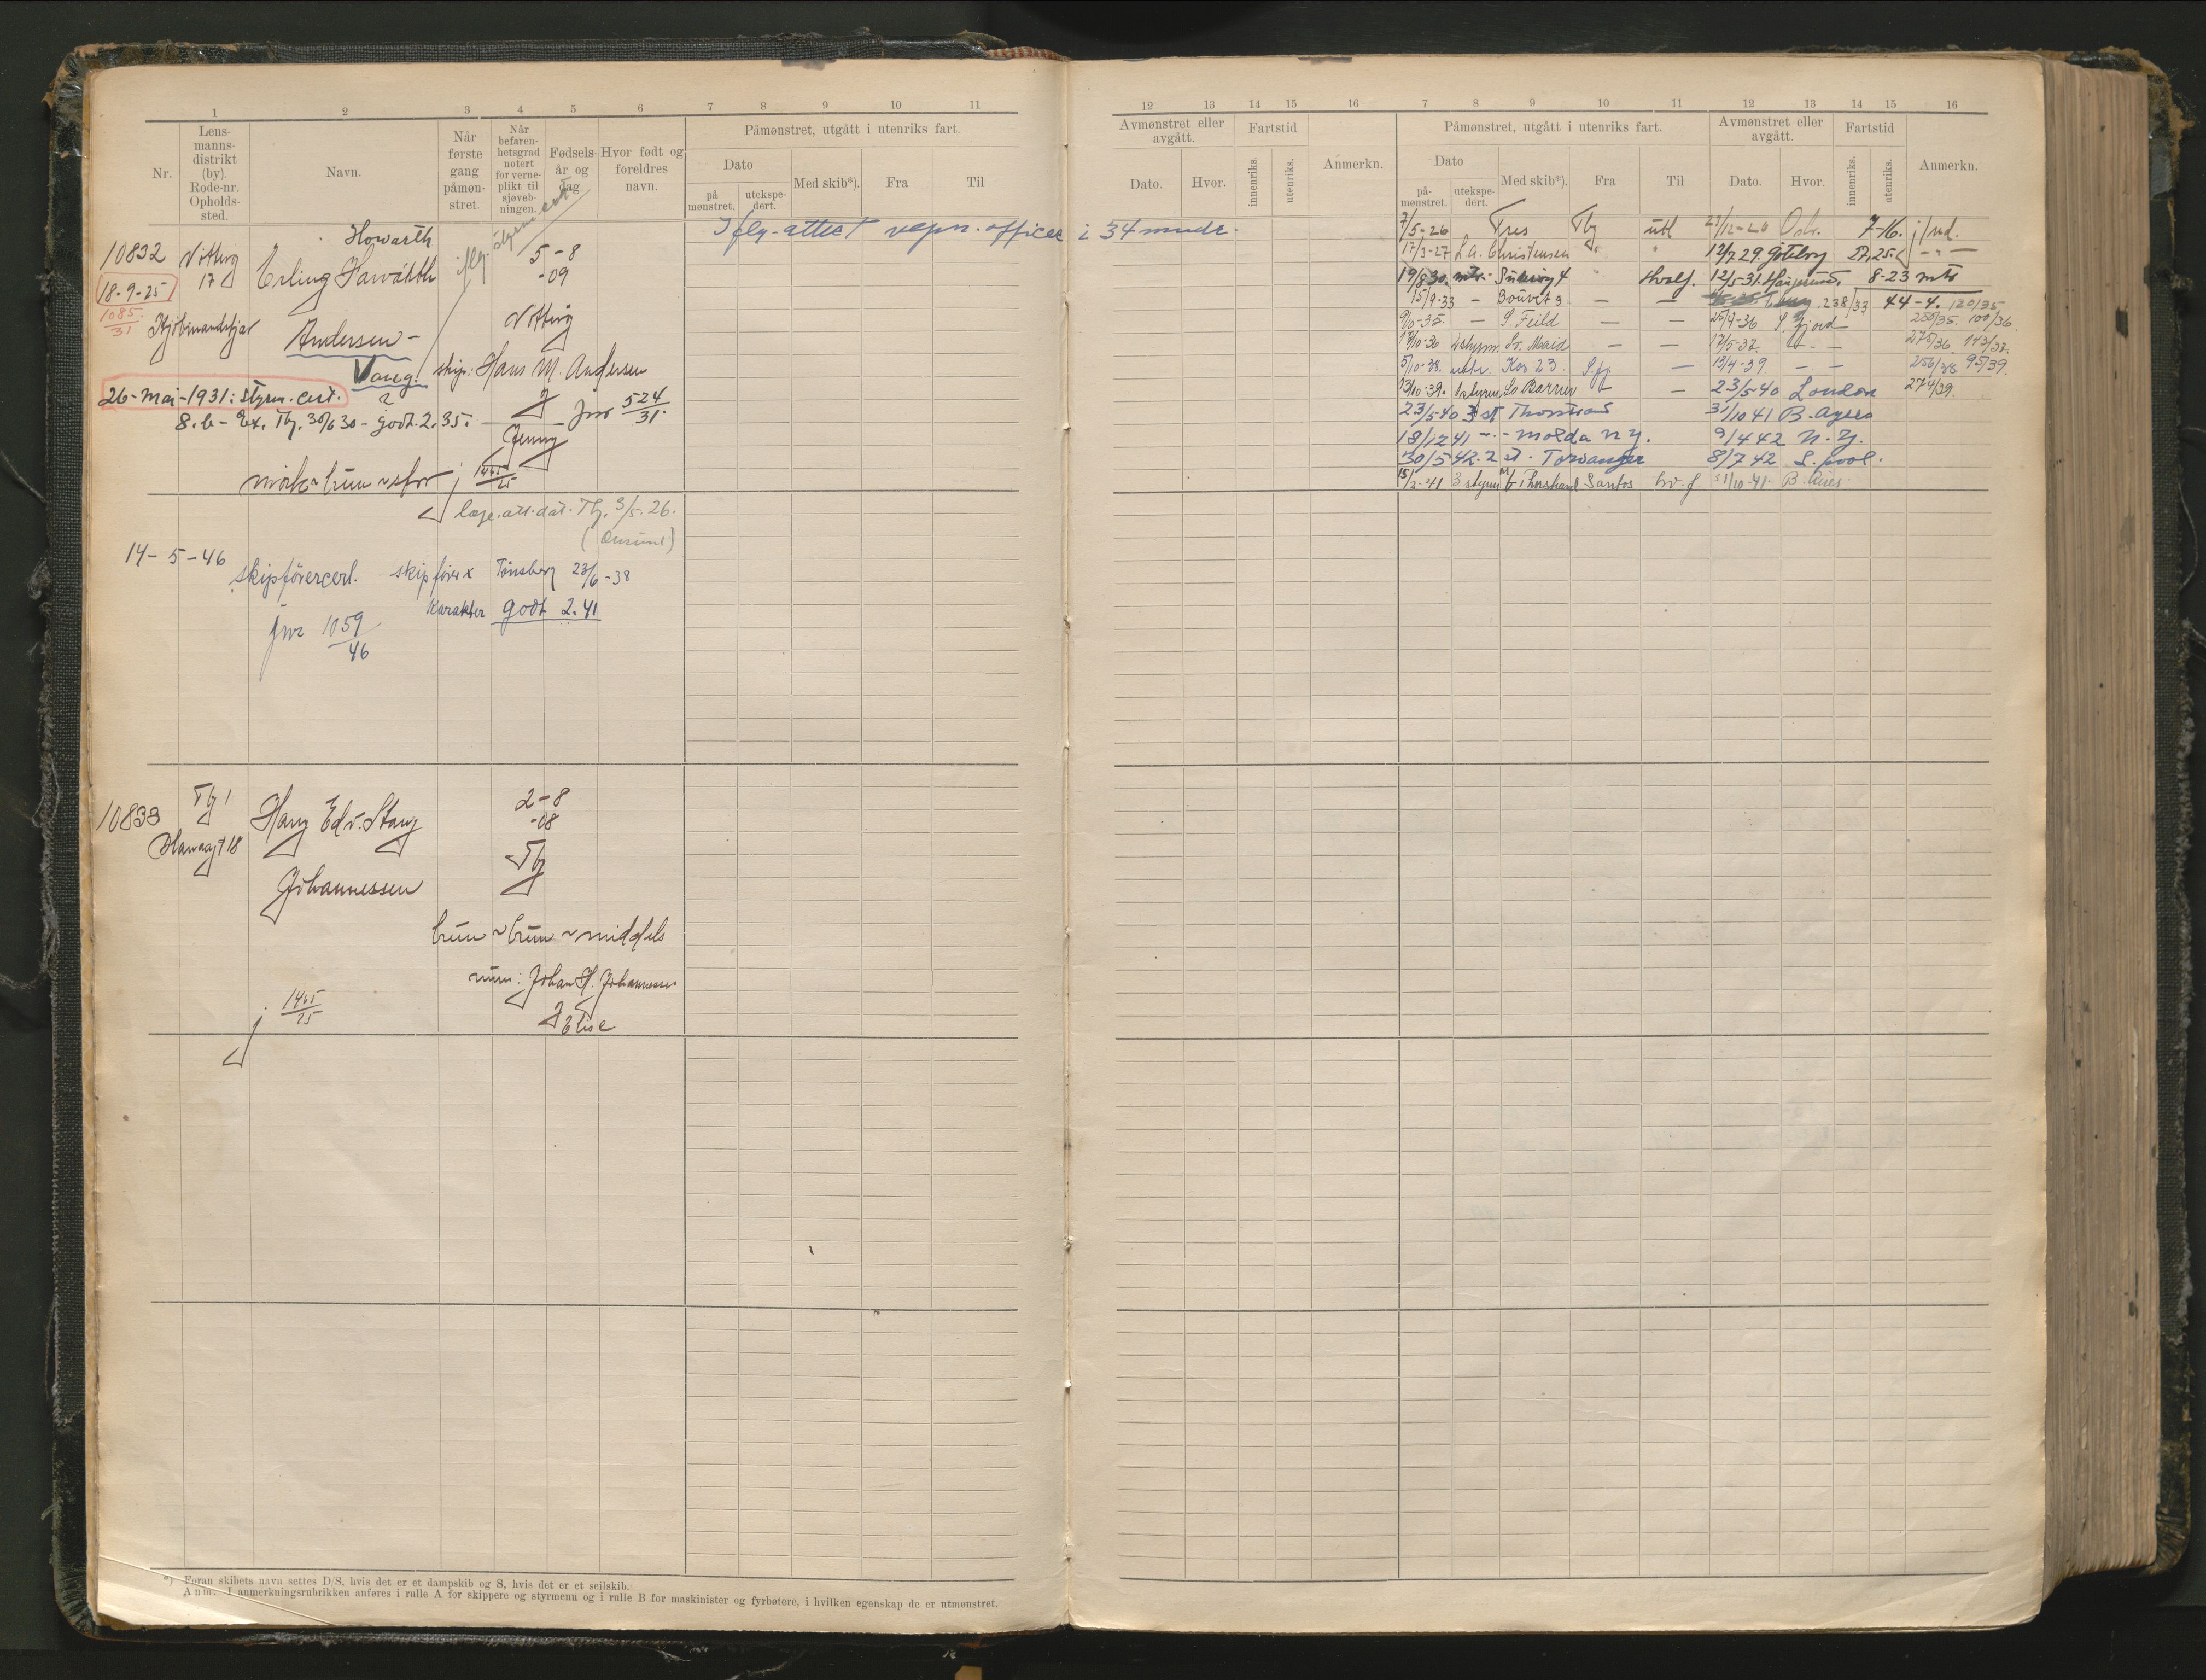 1 2 3 4 5 6 7 8 9 10 11
Nr.
Lens-
manns-
distrikt
(by).
Rode-nr.
Opholds-
sted.
Navn.
Når
første
gang
påmøn-
stret.
Når
befaren-
hetsgrad
notert
for verne-
plikt til
sjøveb-
ningen.
Fødsels-
år og
dag
Hvor født og
foreldres
navn.
Påmønstret, utgått i utenriks fart.
Dato
på
mønstret.
utekspe-
dert.
Med skib*).
Fra
Til
Howarth
10832 Nøtterø 5-8
17 Erling -09
18-9-25
1085
31
Andersen -
Nøtterø
Vang. skip: Hans M. Andersen
26-mai-1931: styrm. cert.
8.b - Ex. Tbg. 30/6 30 - godt. 2.35. jnr 524
31.
Jenny
j 1465
25
læge.att.dat. Tbg. 3/5.26.
14-5-46
skipførercert. skipfører x Tønsberg 23/6-38
Karakter godt 2.41
jnr 1059
46
10833 Tbg 1 2-8
-08
Tbg
Johannessen
brun ~ brun ~ middels
mur: Johan H. Johannessen
Elise
j. 1465
25
*) Foran skibets navn settes D/S, hvis det er et dampskib og S, hvis det er et seilskib.
Anm. I anmerkningsrubrikken anføres i rulle A for skippere og styrmenn og i rulle B for maskinister og fyrbøtere, i hvilken egenskap de er utmønstret.
12 13 14 15 16 7 8 9 10 11 12 13 14 15 16
Avmønstret eller
avgått.
Dato.
Hvor.
Fartstid
innenriks.
utenriks.
Anmerkn.
Påmønstret, utgått i utenriks fart.
Dato
på-
mønstret.
utekspe-
dert.
Med skib*).
Fra
Til
Avmønstret eller
avgått.
Dato.
Hvor.
Fartstid
innenriks.
utenriks.
Anmerkn.
Iflg. attest vepn. officer i 34 mndr.
7/5-26 Tres Tbg utl 7-16.
17/3-27 L.A. Christensen 12/7 29. Gøtebrg 27,25.
19/8 30. mtr. hvalf. 12/5-31. 8-23 mtr
15/9-33 - Bouvet 3 - - 238/33 44-4. 120/35
9/10-35. - S. Feild - - 25/4-36 S.fjord 250/35. 100/36.
- - 12/5-37. - -
5/10-38. Kos 23. S.fj. - 13/4-39 - - 256/38 95/39.
13/10-39. - - 23/5-40 London 274/39.
23/5-40 3 st Thorstrand 31/10 41 B. Ayres
18/12 41 - - Molda N.Y. 9/4 42 N.Y.
30/5 42. 2 st. Torvanger 8/7 42 L.pool.
15/2-41 3 styrm Thorstrand Santos hv.f. 31/10-41. B. Aires.